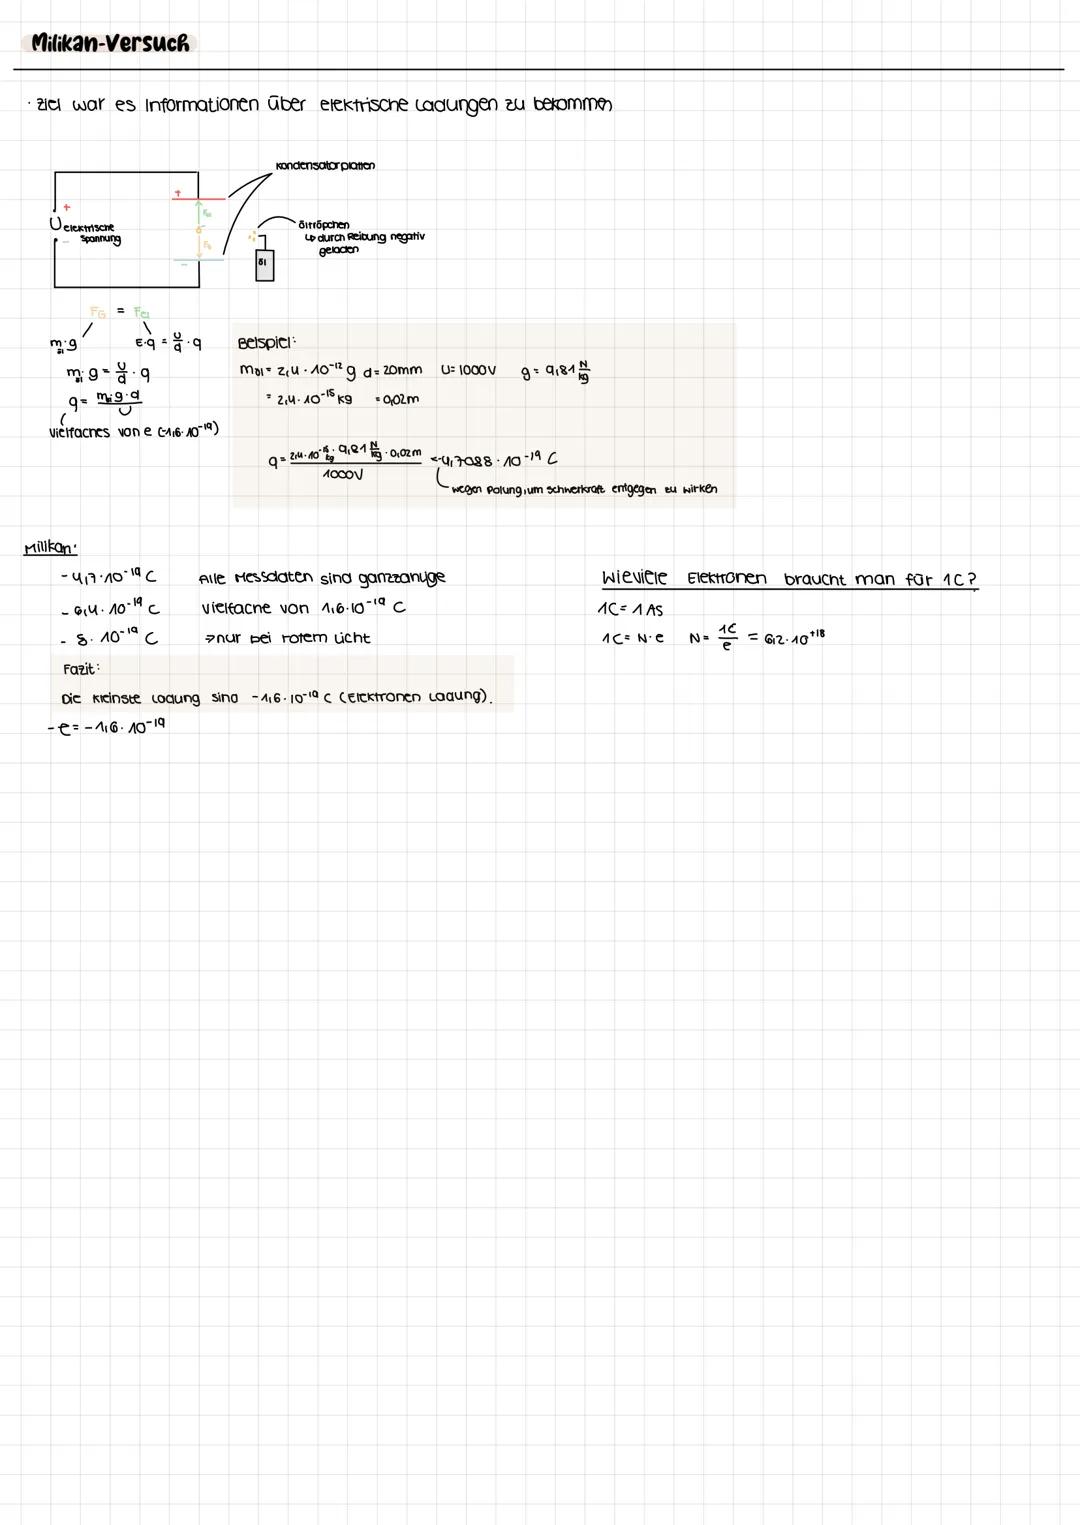 Milikan-Versuch
· Ziel war es Informationen über elektrische Ladungen zu bekommen
Kondensatorplatten
+
+
U elektrische
Spannung
-
-
Fel
FG
Öltröpchen
↳ durch Reibung negativ
geladen
Öl
FG = Fel
mÖl·g
E·q = U/d · q
mÖl·g = U/d · q
q = mÖl·g·d / U
Vielfaches von e (-1,6·10^-19)
Beispiel:
mÖl = 2,4 · 10^-12 g d = 20mm U = 1000V g = 9,81 N/kg
= 2,4 · 10^-15 kg = 0,02m
q = 2,4·10^-15 kg · 9,81 N/kg · 0,02m / 1000V = -4,7088 · 10^-19 C
wegen Polung, um Schwerkraft entgegen zu wirken
Milikan:
- 4,7·10^-19 C Alle Messdaten sind ganzzahlige
- 6,4 · 10^-19 C Vielfache von 1,6·10^-19 C
- 8 · 10^-19 C → nur bei rotem Licht
Fazit:
Die kleinste Ladung sind -1,6·10^-19 C (Elektronen Ladung).
-e = -1,6 · 10^-19
Wieviele Elektronen braucht man für 1C?
1C = 1 AS
1C = N·e N = 1C/e = 6,2·10^+18